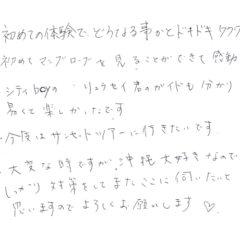 初めての体験で、どうなる事かとドキドキワクワク
初めてマングローブを見ることができて感動
シティboyの リュウセイ君のガイドも分かり
易くて楽しかったです
・今度はサンセットツアーに行きたいです
・大変な時ですが、沖縄大好きなので
しっかり対策をしてまたここに伺いたいと
思いますのでよろしくお願いします♡。